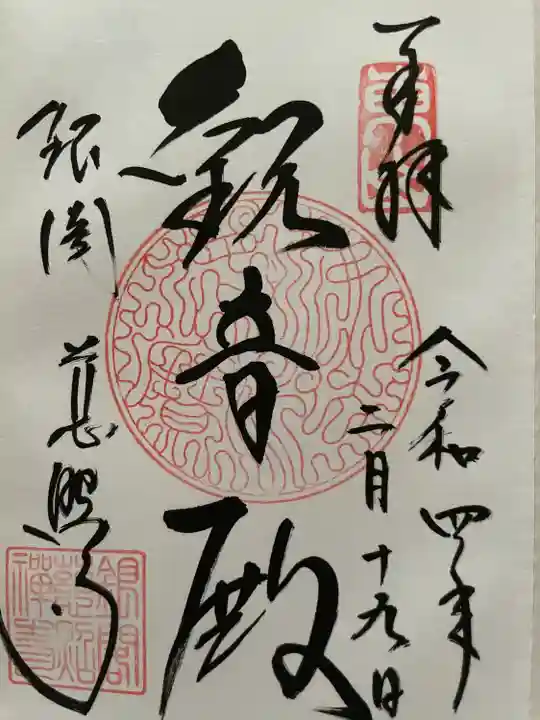 奉拝
令和四年
二月十九日
観音殿
銀閣
慈照寺